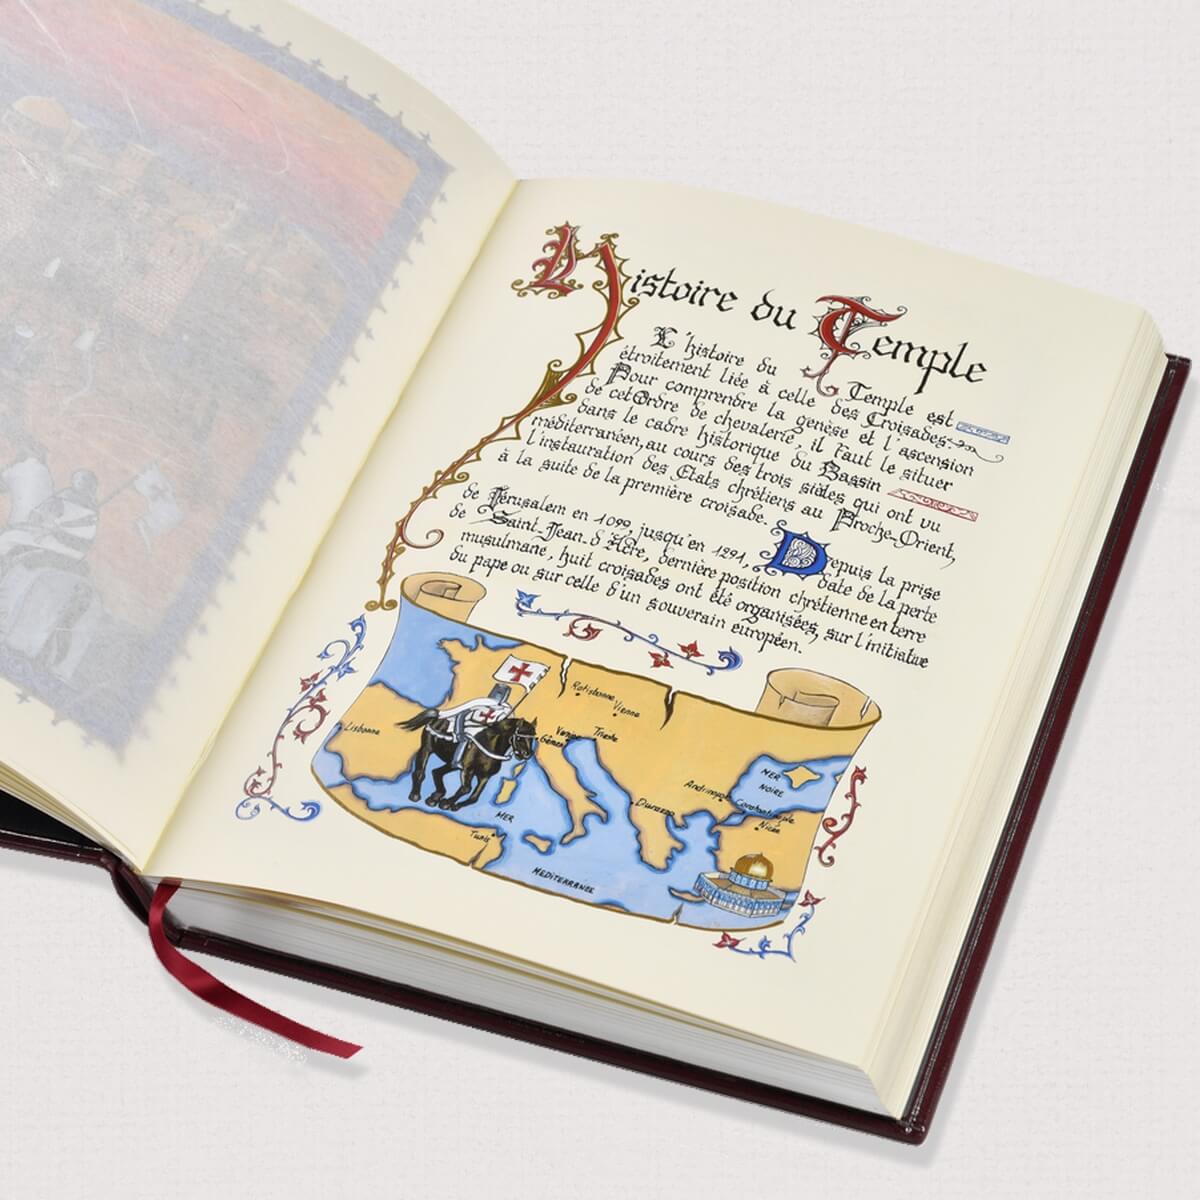 Histoire du Temple
L'histoire du Temple est
étroitement liée à celle des Croisades.
Pour comprendre la genèse et l'ascension
de cet Ordre de chevalerie, il faut le situer
dans le cadre historique du Bassin
méditerranéen, au cours des trois siècles qui ont vu
l'instauration des Etats chrétiens au Proche-Orient,
à la suite de la première croisade.
Depuis la prise
de Jérusalem en 1099, jusqu'en 1291, date de la perte
de Saint-Jean-d'Acre, dernière position chrétienne en terre
musulmane, huit croisades ont été organisées, sur l'initiative
du pape ou sur celle d'un souverain européen.
Ratisbonne
Vienne
Lisbonne
Venise
Trieste
Gênes
MER
NOIRE
Andrinople
Constantinople
Durazzo
Nicée
MER
Tunis
MEDITERRANEE